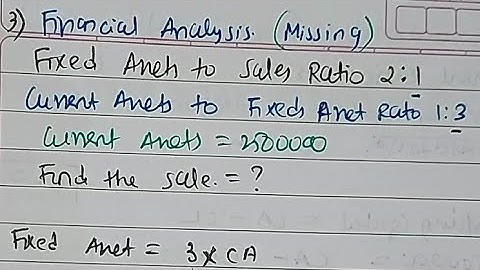 3) Financial Analysis. (Missing)
Fixed Assets to Sales Ratio 2:1
Current Assets to Fixeds Asset Rato 1:3
Current Assets = 2500000
Find the sale. = ?
Fixed Asset = 3 x CA